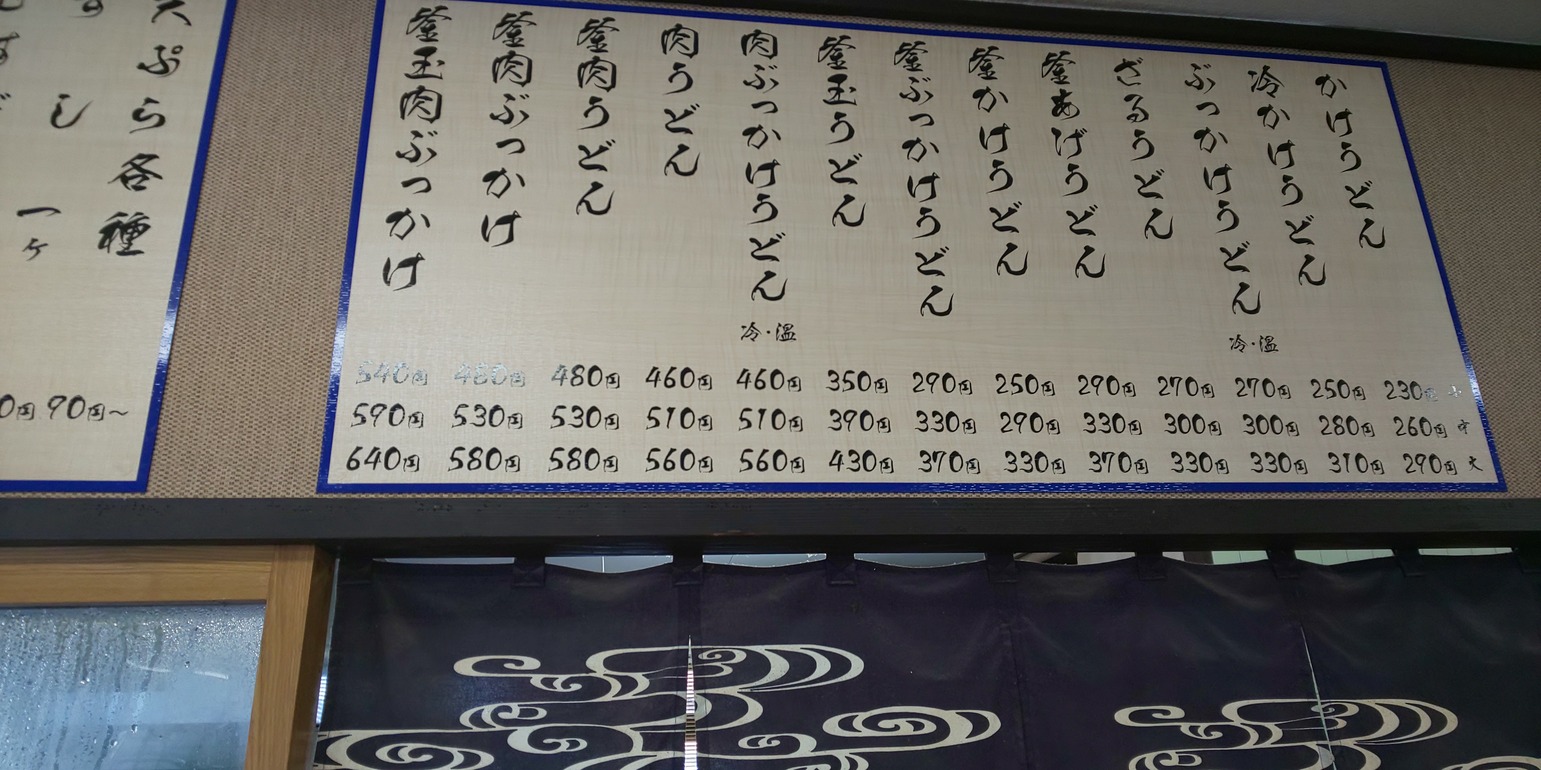 かけうどん
冷かけうどん
ぶっかけうどん 冷・温
ざるうどん
釜あげうどん
釜かけうどん
釜ぶっかけうどん
釜玉うどん
肉ぶっかけうどん 冷・温
肉うどん
釜肉うどん
釜肉ぶっかけ
釜玉肉ぶっかけ
540円 480円 480円 460円 460円 350円 290円 250円 290円 270円 270円 250円 230円 小
590円 530円 530円 510円 510円 390円 330円 290円 330円 300円 300円 280円 260円 中
640円 580円 580円 560円 560円 430円 370円 330円 370円 330円 330円 310円 290円 大
天ぷら各種
90円～
すし 一ヶ
0円